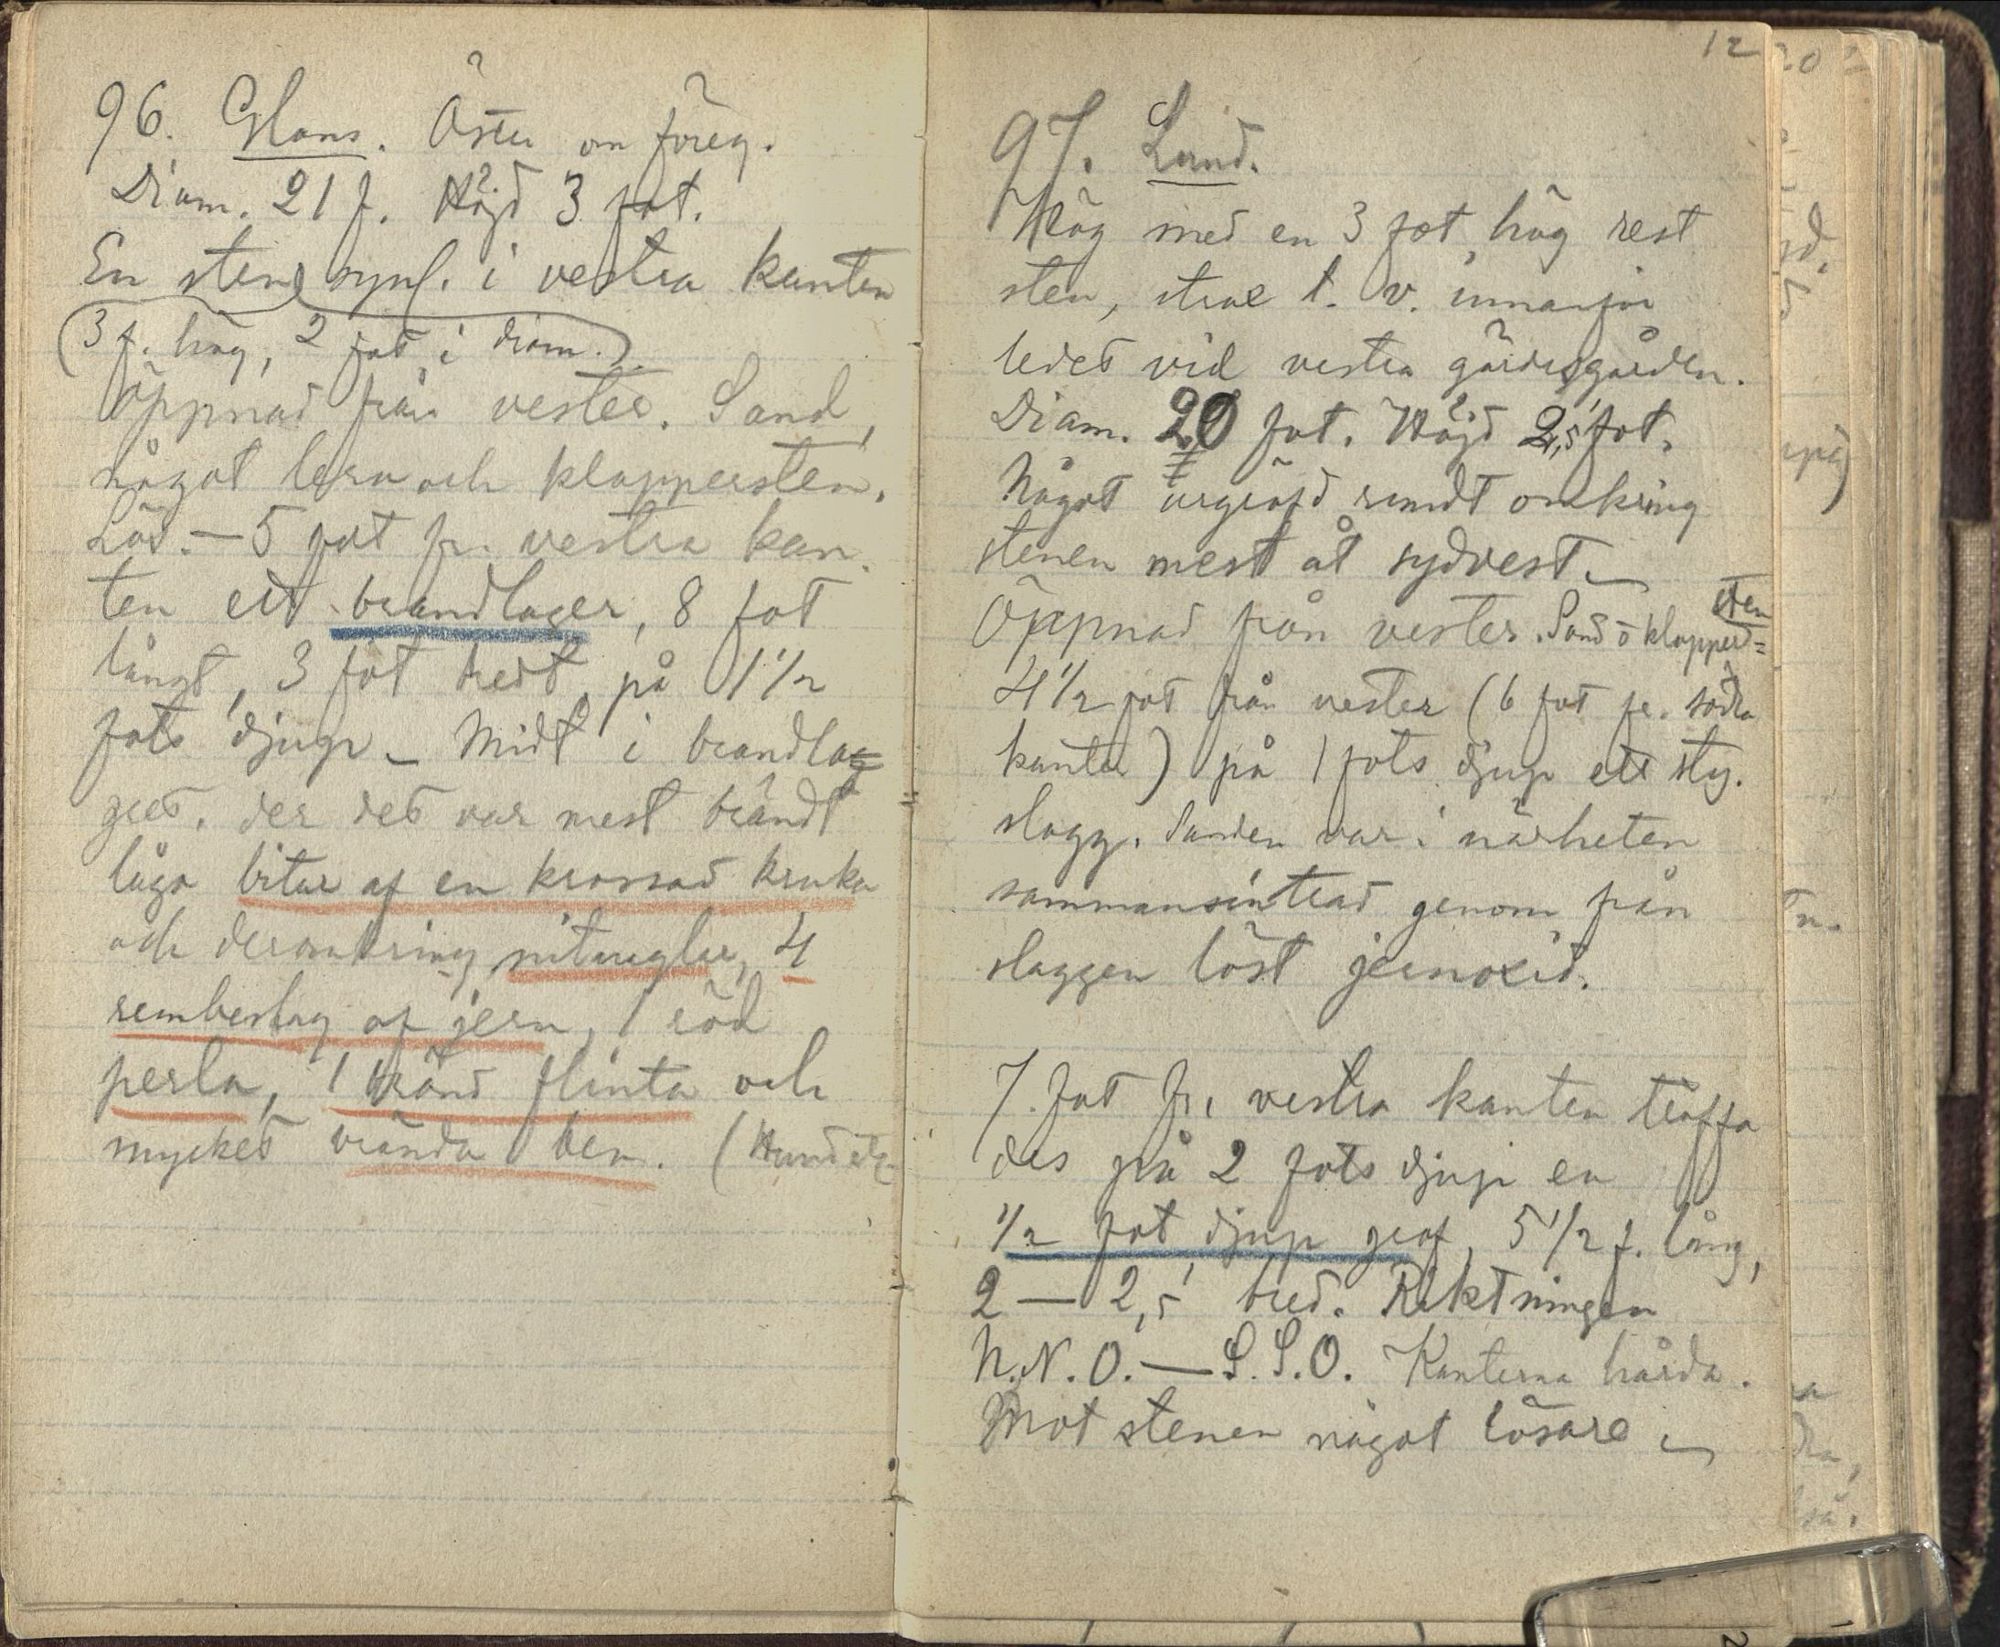 96. Glans. Öster om föreg.
Diam. 21 f. Höjd 3 fot.
En sten synl. i vestra kanten
(3 f. hög, 2 fot i diam.)
Öppnad från vester. Sand,
något lera och klappersten.
Lös. — 5 fot fr. vestra kan-
ten ett brandlager, 8 fot
långt, 3 fot bredt, på 1 1/2
fots djup — Midt i brandla=
gret, der det var mest brändt
lågo bitar af en krossad kruka
och deromkring nitnaglar, 4
rembeslag af jern, 1 röd
perla, 1 bränd flinta och
mycket brända ben. (Hund etc
12
97. Lund.
Hög med en 3 fot hög rest
sten, strax t. v. innanför
ledet vid vestra gärdesgården.
Diam. 20 fot. Höjd 2,5 fot.
Något urgräfd rundt omkring
stenen mest åt sydvest —
Öppnad från vester. Sand o klapper=
sten
4 1/2 fot från vester (6 fot fr. södra
kanten) på 1 fots djup ett sty.
slagg. Sanden var i närheten
sammansintrad genom från
slaggen löst jernoxid.
7 fot fr. vestra kanten träffa
des på 2 fots djup en
1/2 fot djup graf, 5 1/2 f. lång,
2 — 2,5 bred. Riktningen
N.N.O. — S.S.O. Kanterna hårda.
Mot stenen något lösare —